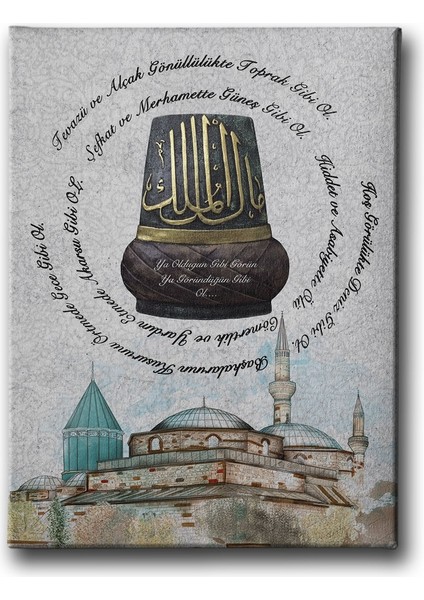 Tevazü ve Alçak Gönüllülükte Toprak Gibi Ol.
Şefkat ve Merhamette Güneş Gibi Ol.
Hiddet ve Asabiyette Ölü
Hoş Görülükte Deniz Gibi Ol.
Cömertlik ve Yardım Etmede Akarsu Gibi Ol.
Başkalarının Kusurunu Örtmede Gece Gibi Ol.
مالك الملك
Ya Olduğun Gibi Görün
Ya Göründüğün Gibi
Ol....